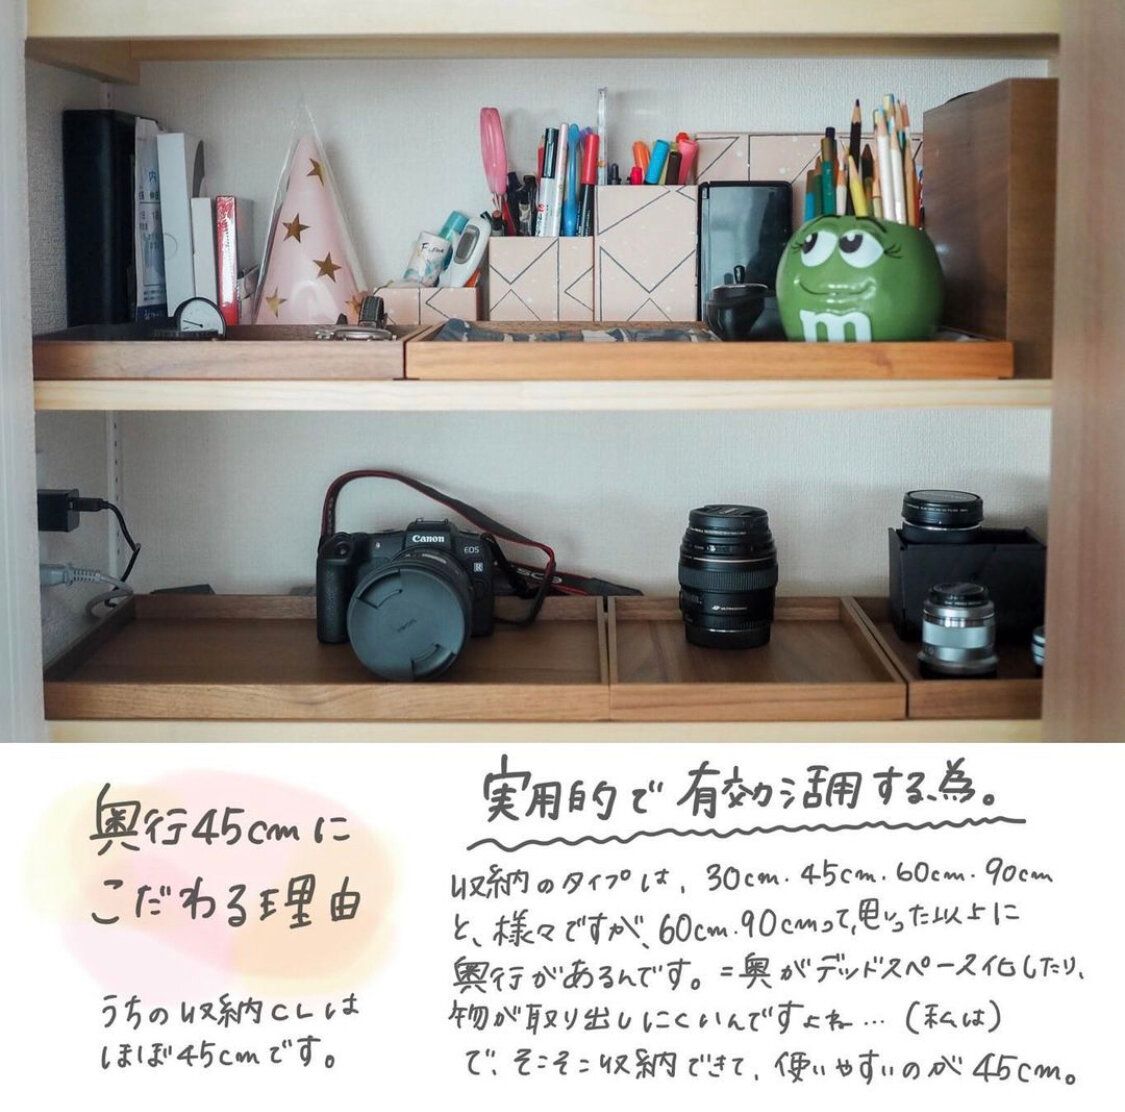 内
m
Canon
EOS
R
ULTRASONIC
奥行45cmに
こだわる理由
うちの収納CLは
ほぼ45cmです。
実用的で有効活用する為。
収納のタイプは、30cm・45cm・60cm・90cm
と、様々ですが、60cm・90cmって、思った以上に
奥行があるんです。=奥がデッドスペース化したり、
物が取り出しにくいんですよね…(私は)
で、そこそこ収納できて、使いやすいのが45cm。